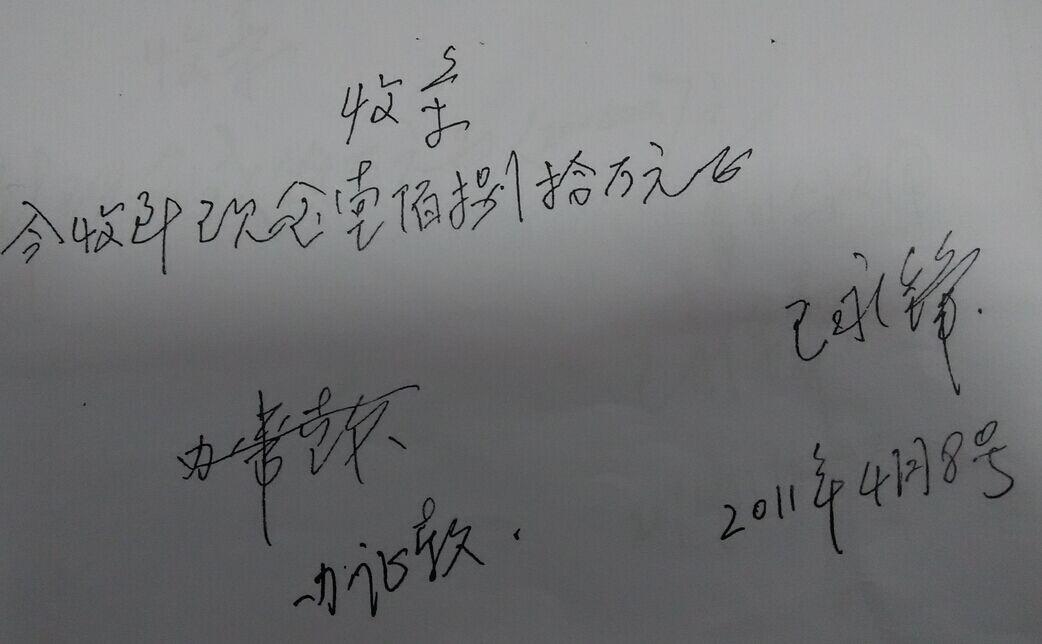 收条
今收到现金壹佰捌拾万元正
2011年4月8号
办证款.